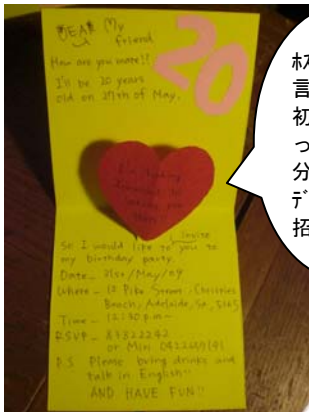 DEAR My
friend
20
How are you mate!!
I'll be 20 years
old on 27th of May.
I'm looking
forward to
seeing you
there!!
Invite
So I would like to you to
my birthday party.
Date - 31st/May/09
Where - 12 Pike Street, Christies
Beach, Adelaide, SA, 5165
Time - 12:30 p.m~
RSVP - 83822242
or Mim 0422669191
P.S Please bring drinks and
talk in English!!
AND HAVE FUN!!
言
初
っ
分
デ
招